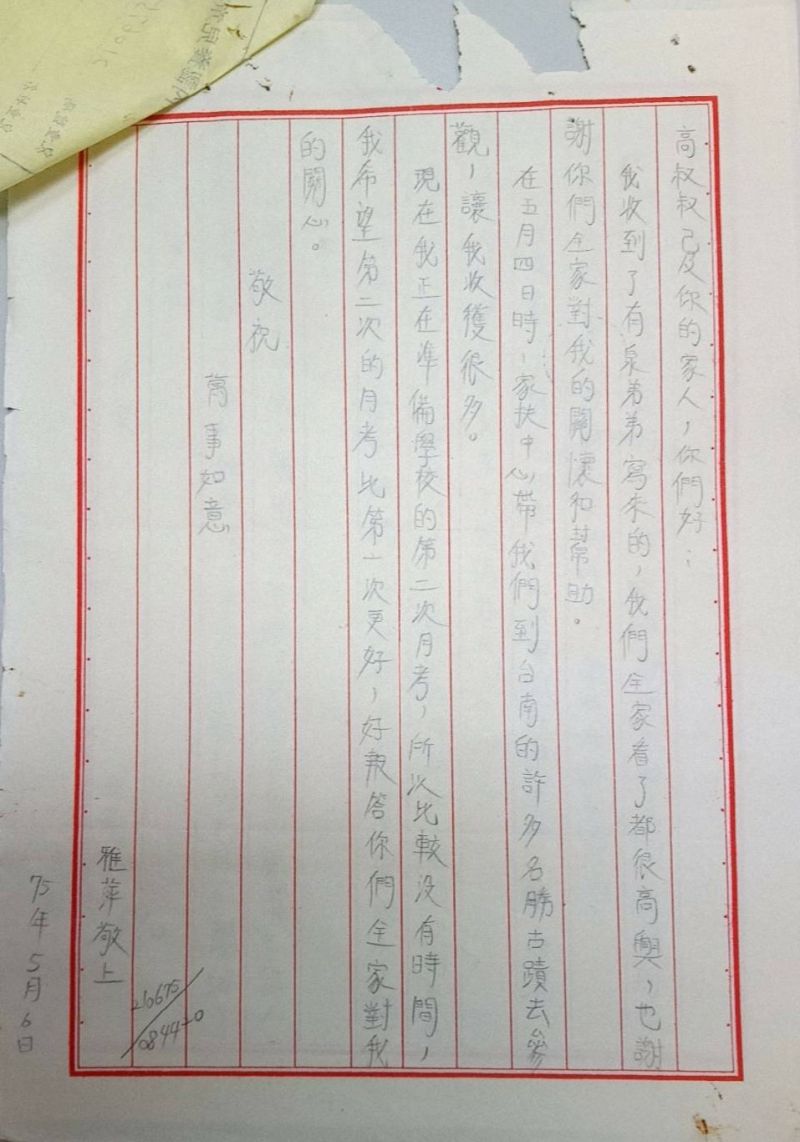 高叔叔己及你的家人，你們好：
我收到了有泉弟弟寫來的，我們全家看了都很高興，也謝
謝你們全家對我的關懷和幫助。
在五月四日時，家扶中心帶我們到台南的許多名勝古蹟去參
觀，讓我收獲很多。
現在我正在準備學校的第二次月考，所以比較沒有時間，
我希望第二次的月考比第一次更好，好報答你們全家對我
的關心。
敬祝
萬事如意
雅萍敬上
210675/08442-0
75年5月6日